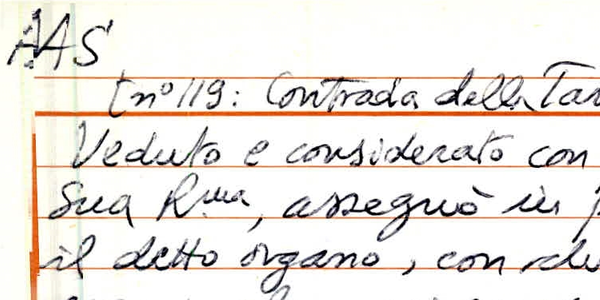 AAS
[n° 119: Contrada della Tar
Veduto e considerato con
Sua R.ma, assegnò in
il detto organo, con